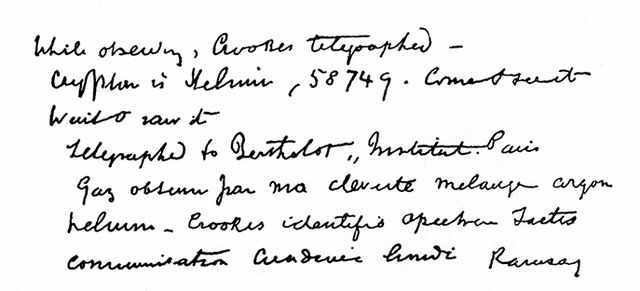 While observing, Crookes telegraphed –
Crypton is Helium, 58749. Come & see it
Went & saw it
Telegraphed to Berthelot, Institut. Paris
Gaz obtenu par moi cleveite melange argon
helium – Crookes identifie spectre Faites
communication Academie lundi Ramsay